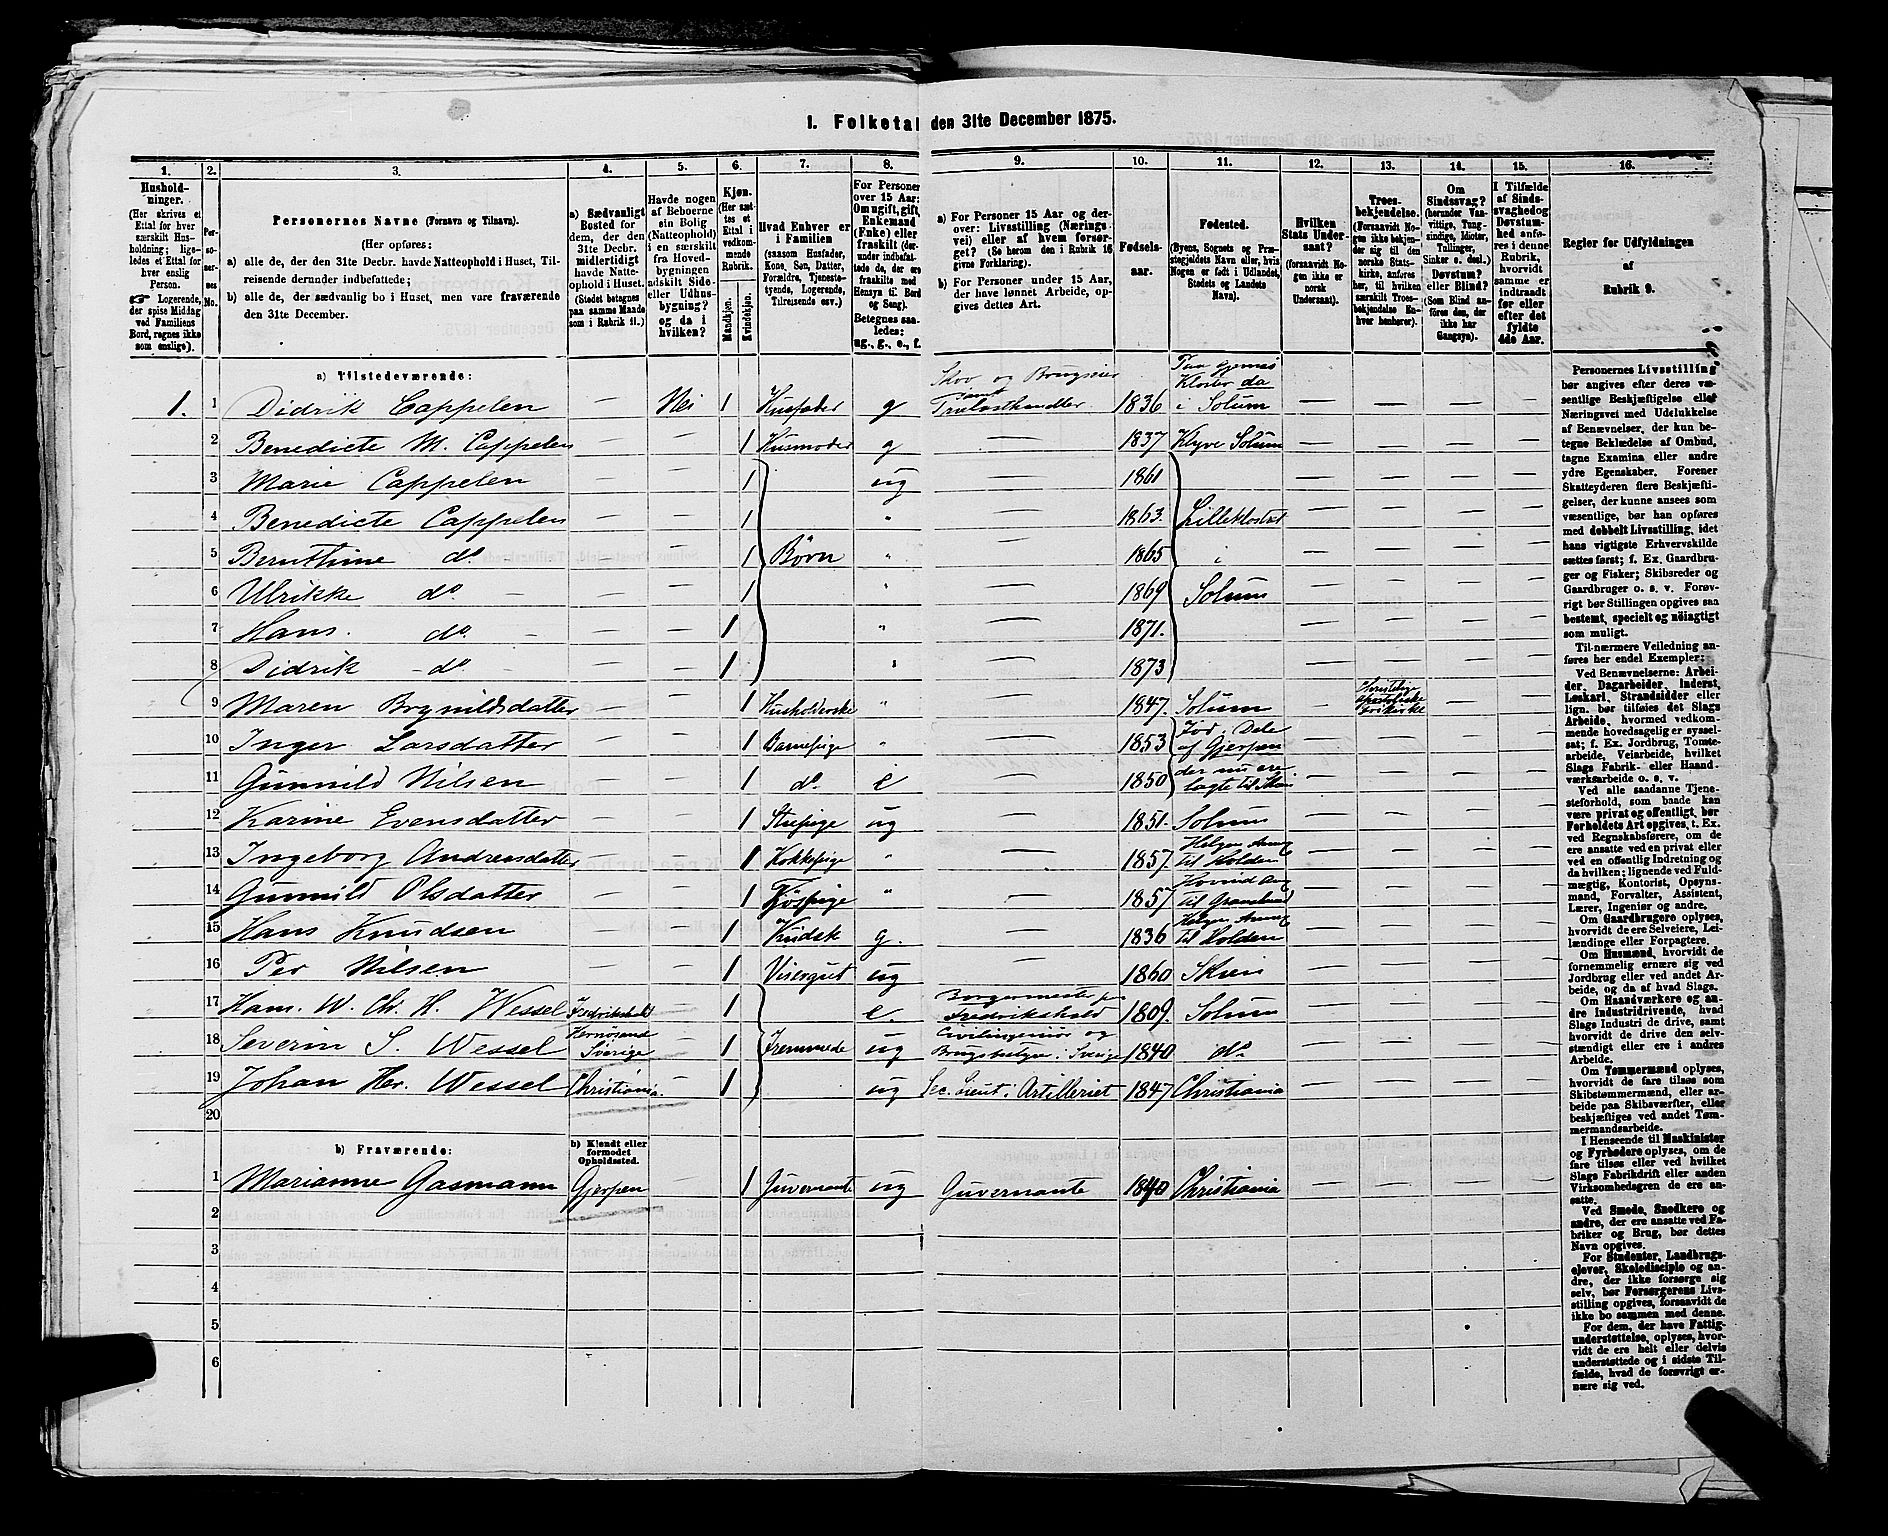 1. Folketal den 31te December 1875.
1. 2. 3. 4. 5. 6. 7. 8. 9. 10. 11. 12. 13. 14. 15. 16.
Husholdninger. (Her skrives et Ettal for hver særskilt Husholdning; ligeledes et Ettal for hver enslig Person. Logerende, der spise Middag ved Familiens Bord, regnes ikke som enslige).
Personernes No.
Personernes Navne (Fornavn og Tilnavn).
(Her opføres:
a) alle de, der den 31te Decbr. havde Natteophold i Huset, Tilreisende derunder indbefattede;
b) alle de, der sædvanlig bo i Huset, men vare fraværende den 31te December.
a) Sædvanligt Bosted for dem, der den 31te Decbr. midlertidigt havde Natteophold i Huset. (Stedet betegnes paa samme Maade som i Rubrik 11.)
Havde nogen af Beboerne sin Bolig (Natteophold) i en særskilt fra Hovedbygningen adskilt Side- eller Udhusbygning? og da i hvilken?
Kjøn. (Her sættes et Ettal i vedkommende Rubrik.
Mandkjøn. Kvindekjøn.
Hvad Enhver er i Familien (saasom Husfader, Kone, Søn, Datter, Forældre, Tjenestetyende, Logerende, Tilreisende osv.)
For Personer over 15 Aar: Om ugift, gift, Enkemand (Enke) eller fraskilt (derunder indbefattede de, der ere fraskilte med Hensyn til Bord og Seng). Betegnes saaledes: ug., g., e., f.
a) For Personer 15 Aar og derover: Livsstilling (Næringsvei) eller af hvem forsørget? (Se herom den i Rubrik 16 givne Forklaring).
b) For Personer under 15 Aar, der have lønnet Arbeide, opgives dettes Art.
Fødselsaar.
Fødested. (Byens, Sognets og Præstegjeldets Navn eller, hvis Nogen er født i Udlandet, Stedets og Landets Navn).
Hvilken Stats Undersaat? (foraavidt Nogen ikke er norsk Undersaat).
Troesbekjendelse. (Forsaavidt Nogen ikke bekjender sig til den norske Statskirke, anføres her, til hvilken særskilt Troesbekjendelse Enhver henhører).
Om Sindssvag? (herunder Vanvittige, Tungsindige, Idioter, Tullinger, Sinker o. desl.). Døvstum? eller Blind? (Som Blind anføres den, der ikke har Gangsyn).
I Tilfælde af Sindssvaghed og Døvstumhed anføres i denne Rubrik, hvorvidt samme er indtraadt før eller efter det fyldte 4de Aar.
Regler for Udfyldningen af Rubrik 9.
a) Tilstedeværende:
1. 1 Didrik Cappelen — Nei 1 Husfader g Skov og Brugseier samt Trælasthandler 1836 Kloster da i Solum
2 Benedicte M. Cappelen — — 1 Husmoder g — 1837 Klyve Solum — — — —
3 Marie Cappelen — — 1 ug — 1861 — — — —
4 Benedicte Cappelen — — 1 " — 1863. Lilleklostret — — — —
5 Bernthine do. — — 1 Børn " — 1865 i — — — —
6 Ulrikke do. — — 1 " — 1869 Solum — — — —
7 Hans. do. — — 1 " — 1871. — — — —
8 Didrik do — — 1 " — 1873 — — — —
9 Maren Brynildsdatter — — 1 Husholderske " — 1847. Solum — Christelig apostoliske Frikirke — —
10 Inger Larsdatter — — 1 Barnepige " — 1853 Fød i Dele af Gjerpen — — — —
11 Gunnild Nilsen — — 1 do. e — 1850 der nu ere lagte til Skien — — — —
12 Karine Evensdatter — — 1 Stuepige ug — 1851. Solum — — — —
13 Ingeborg Andrensdatter — — 1 Kokkepige " — 1857. Helgen Annex til Holden — — — —
14 Gunnild Olsdatter — — 1 " — 1857 — — — —
15 Hans Knudsen — — 1 Kudsk g. — 1836 Helgen Annex til Holden — — — —
16 Per Nilsen — — 1 Visergut ug — 1860 Skien — — — —
17 Hans. W. Chr. H. Wessel Fredrikshald — 1 e. Borgermester paa Fredrikshald 1809. Solum — — — —
18 Severin S. Wessel Hernøsand Sverige — 1 Fremmede ug Civilingeniør og i Sverige 1840 do. — — — —
19 Johan Her. Wessel Christiania. — 1 ug Sec. Lieut. i Artilleriet 1847 Christiania — — — —
20
b) Fraværende:
b) Kjendt eller formodet Opholdssted.
1 Marianne Gasmann Gjerpen — 1 Guvernante ug Guvernante 1840 Christiania — — — —
2
3
4
5
6
Personernes Livsstilling
bør angives efter deres væsentlige Beskjæftigelse eller
Næringsvei med Udelukkelse
af Benævnelser, der kun betegne Beklædelse af Ombud,
tagne Examina eller andre
ydre Egenskaber. Forener
Skatteyderen flere Beskjæftigelser, der kunne ansees som
væsentlige, bør han opføres
med dobbelt Livsstilling, idet
hans vigtigste Erhvervskilde
sættes først; f. Ex. Gaardbruger og Fisker; Skibsreder og
Gaardbruger o. s. v. Forøvrigt bør Stillingen opgives saa
bestemt, specielt og nøiagtigt
som muligt.
Til nærmere Veiledning anføres her endel Exempler:
Ved Benævnelserne: Arbeider, Dagarbeider, Inderst,
Løskarl, Strandsidder eller
lign. bør tilføies det Slags
Arbeide, hvormed vedkommende hovedsagelig er sysselsat; f. Ex. Jordbrug, Tomtearbeide, Veiarbeide, hvilket
Slags Fabrik- eller Haandværksarbeide o. s. v.
Ved alle saadanne Tjenesteforhold, som baade kan
være privat og offentligt, bør
Forholdets Art opgives, f. Ex.
ved Regnskabsførere, om de
ere ansatte ved en privat eller
ved en offentlig Indretning og
da hvilken; lignende ved Fuldmægtig, Kontorist, Opsynsmand, Forvalter, Assistent,
Lærer, Ingeniør og andre.
Om Gaardbrugere oplyses,
hvorvidt de ere Selveiere, Leilændinge eller Forpagtere.
Om Husmænd, hvorvidt de
fornemmelig ernære sig ved
Jordbrug eller ved andet Arbeide, og da af hvad Slags.
Om Haandværkere og andre Industridrivende, hvad
Slags Industri de drive, samt
hvorvidt de drive den selvstændigt eller ere i andres
Arbeide.
Om Tømmermænd oplyses,
hvorvidt de fare tilsøs som
Skibstømmermænd, eller arbeide paa Skibsværfter, eller
beskjæftiges ved andet Tømmermandsarbeide.
I Henseende til Maskinister
og Fyrbødere oplyses, om de
fare tilsøs eller ved hvilket
Slags Fabrikdrift eller anden
Virksomhedsgren de ere ansatte.
Ved Smede, Snedkere og
andre, der ere ansatte ved Fabriker og Brug, bør dettes
Navn opgives.
For Studenter, Landbrugselever, Skoledisciple og andre, der ikke forsørge sig
selv, bør Forsørgerens Livsstilling opgives, forsaavidt de
ikke bo sammen med denne.
For dem, der have Fattigunderstøttelse, oplyses, hvorvidt de ere helt eller delvis
understøttede og i sidste Tilfælde, hvad de forøvrigt ernære sig ved.